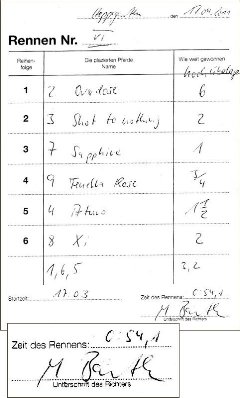 den 17.04.
Rennen Nr. VI
Reihenfolge Die plazierten Pferde Name Wie weit gewonnen
hochüberlegen
1 2 Overdose 6
2 3 Shot to nothing 2
3 7 Sapphire 1
4 9 Rose 3/4
5 4 1 1/2
6 8 Xi 2
1, 6, 5 3, 2
Startzeit: 17 03
Zeit des Rennens: 0:54,1
Unterschrift des Richters
Zeit des Rennens: 0:54,1
M
Unterschrift des Richters